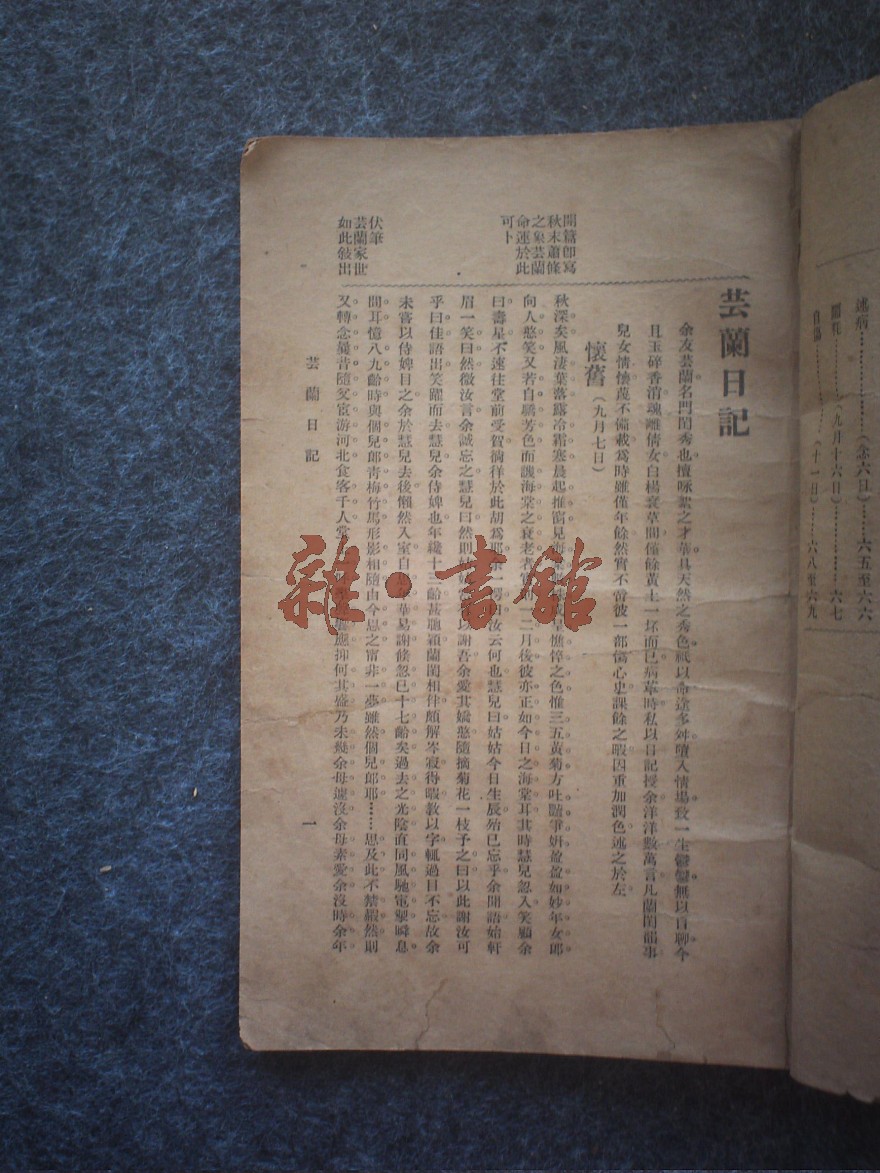 述病…………（念六日）……六五至六六
（九月十六日）……六七
自傷…………（十一日）……六八至六九
芸蘭日記
余友芸蘭名門閨秀也擅咏絮之才華具天然之秀色祇以命途多舛墮入情場致一生鬱鬱無以自聊今
且玉碎香消魂離倩女白楊衰草間僅餘黃土一坏而已病革時私以日記授余洋洋數萬言凡蘭閨韻事
兒女情懷蔑不備載爲時雖僅年餘然實不啻彼一部傷心史課餘之暇因重加潤色述之於左
懷舊（九月七日）
開篇卽寫
秋末蕭條
之象芸蘭
命運於此
可卜
秋深矣風淒葉落露冷霜寒晨起推窗見海憔悴之色惟三五黃菊方吐豔爭妍盈盈如妙年女郎
向人憨笑又若自驕芳色而譏海棠之衰老者一二月後彼亦正如今日之海棠耳其時慧兒忽入笑顧余
曰壽星不速往堂前受賀徜徉於此胡爲耶余一愕曰汝云何也慧兒曰姑姑今日生辰殆已忘乎余聞語始軒
眉一笑曰然微汝言余誠忘之慧兒曰然則以謝吾余愛其嬌憨隨摘菊花一枝予之曰以此謝汝可
乎曰佳語出笑躍而去慧兒余侍婢也年纔十三齡甚聰穎蘭閨相伴頗解岑寂得暇教以字輒過目不忘故余
未嘗以侍婢目之余於慧兒去後懶然入室自華易謝倏忽已十七齡矣過去之光陰直同風馳電掣瞬息
間耳憶八九齡時與個兒郎靑梅竹馬形影相隨由今思之甯非一夢雖然個兒郎耶……思及此不禁赧然則
伏筆
芸蘭家世
如此敍出
又轉念曩昔隨父宦游河北食客千人堂應抑何其盛乃未幾余母遽沒余母素愛余沒時余年
芸蘭日記
一
雜·書館